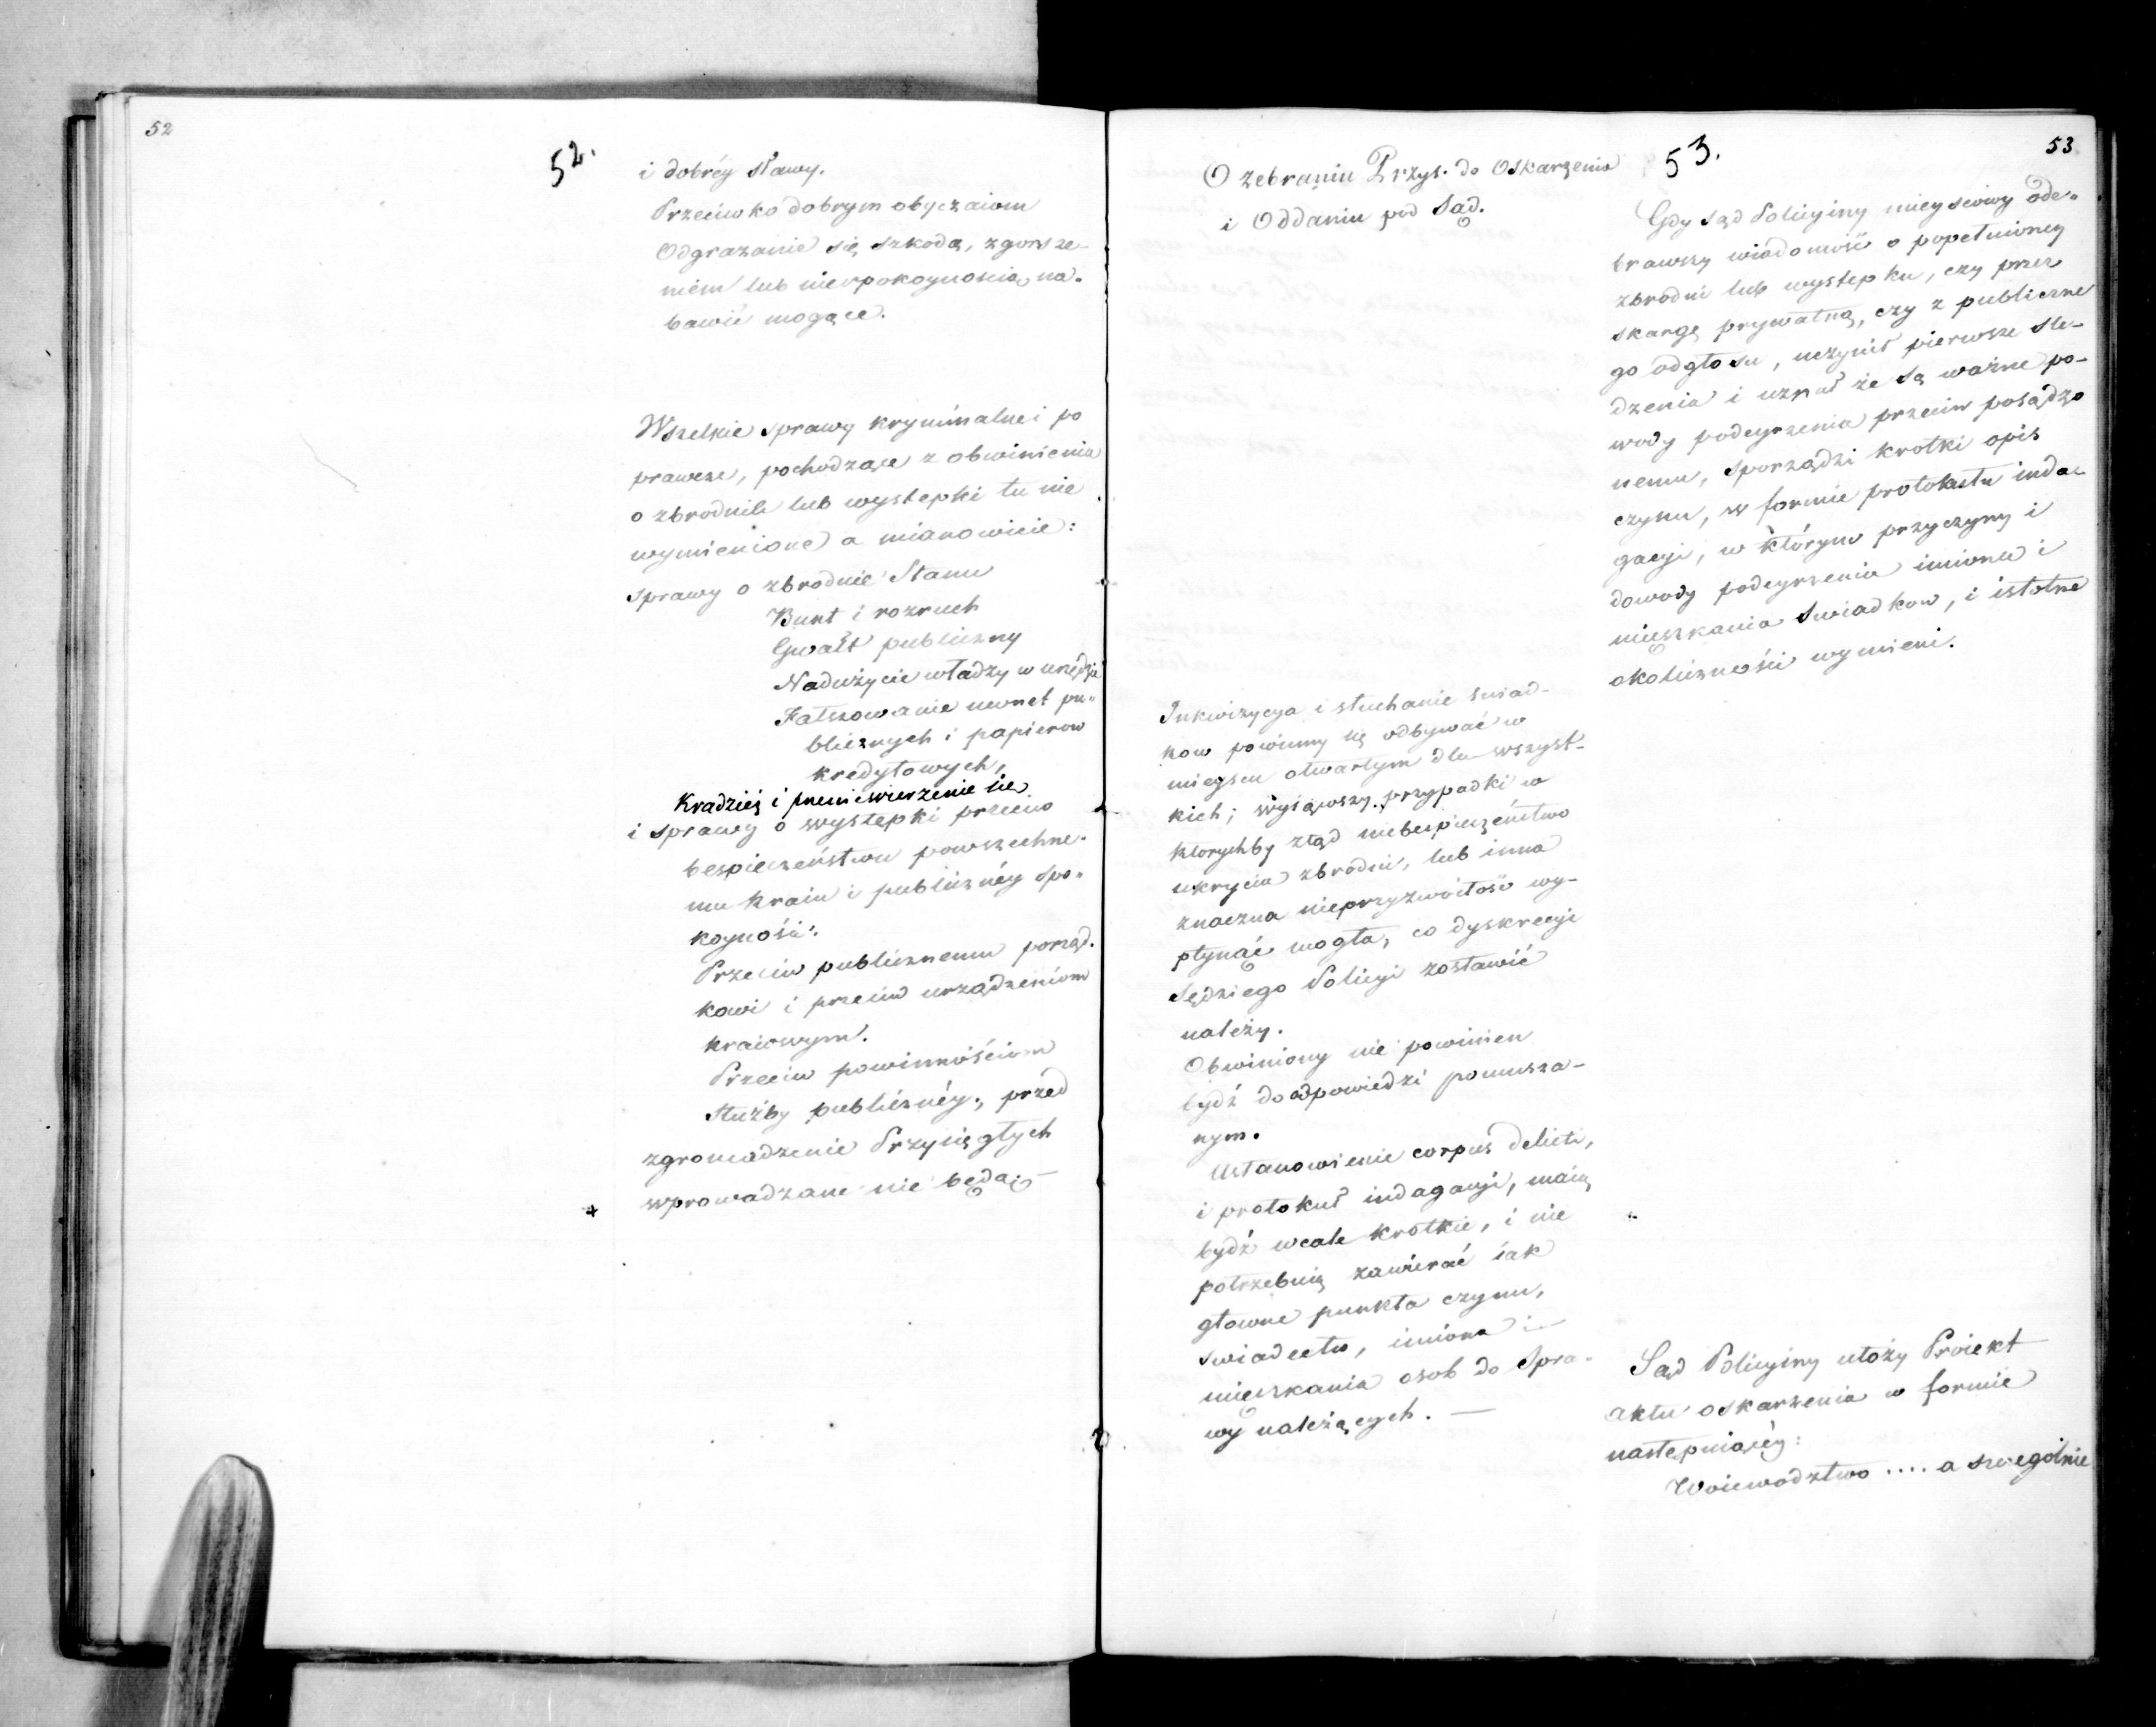 52
52.
i dobréy sławy.
Przeciwko dobrym obyczaiom
Odgrażanie się szkodą, zgorsze-
niem lub niespokoynością na-
bawić mogące.
Wszelkie sprawy kryminalne i po
prawcze, pochodzące z obwinienia
o zbrodnie lub występki tu nie
wymienione a mianowicie:
sprawy o zbrodnie Stanu
Bunt i rozruch
Gwałt publiczny
Nadużycie władzy w urzędzie
Fałszowanie monet pu-
blicznych i papierow
kredytowych,
Kradzież i przeniewierzenie się
i sprawy o występki przeciw
bespieczeństwu powszechne-
mu kraiu i publicznéy spo-
koyności.
Przeciw publicznemu porząd-
kowi i przeciw urządzeniom
kraiowym.
Przeciw powinnościom
służby publicznéy, przed
zgromadzenie Przysięgłych
wprowadzane nie będą. —
53
53.
O zebraniu Przys. do Oskarżenia
i Oddaniu pod Sąd.
Gdy Sąd Policyiny mieyscowy ode-
brawszy wiadomość o popełnioney
zbrodni lub występku, czy przez
skargę prywatną, czy z publiczne
go odgłosu, uczynił pierwsze śle-
dzenia i uznał że są ważne po-
wody podeyrzenia przeciw posądzo
nemu, sporządzi krotki opis
czynu, w formie protokułu inda-
gacyi, w którym przyczyny i
dowody podeyrzenia imiona i
mieszkania Swiadkow, i istotne
okoliczności wymieni.
Inkwizycya i słuchanie swiad-
kow powinny się odbywać w
mieyscu otwartym dla wszyst-
kich; wyiąwszy przypadki w
ktorychby ztąd niebespieczeństwo
ukrycia zbrodni, lub inna
znaczna nieprzyzwoitość wy-
płynąć mogła, co dyskrecyi
Sędziego Policyi zostawić
należy.
Obwiniony nie powinien
bydź do odpowiedzi pomusza-
nym.
Ustanowienie corpus delicti,
i protokuł indagacyi, maią
bydź wcale krotkie, i nie
potrzebuią zawierać iak
głowne punkta czynu,
swiadectw, imiona i
mieszkania osob do Spra-
wy należących. —
Sąd Policyiny ułoży Proiekt
aktu oskarzenia w formie
następuiącéy:
Woiewodztwo .... a szczegolnie